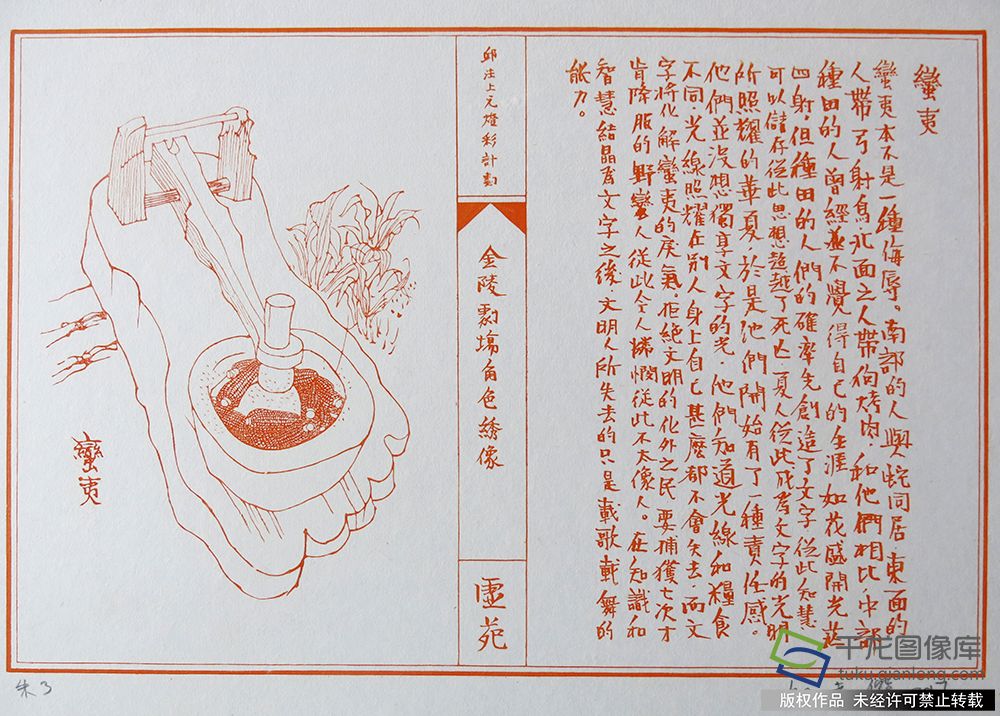 蠻夷
蠻夷本不是一種侮辱。南部的人與蛇同居東面的
人帶弓射鳥，北面之人帶狗烤肉，和他們相比，中部
種田的人曾經並不覺得自己的生涯如花盛開光芒
四射，但種田的人們的確率先創造了文字從此知慧
可以儲存從此思想超越了死亡，夏人從此成為文字的光明
所照耀的華夏，於是他們開始有了一種責任感。
他們並沒想獨享文字的光，他們知道光線和糧食
不同，光線照耀在別人身上自己甚麼都不會失去，而文
字將化解蠻夷的戾氣。拒絕文明的化外之民要捕獲七次才
肯降服的野蠻人從此令人憐憫從此不太像人。在知識和
智慧結晶為文字之後，文明人所失去的只是載歌載舞的
能力。
邱注上元燈彩計劃
金陵劇場角色綉像
虛苑
蠻夷
朱3
千龙图像库
tuku.qianlong.com
版权作品 未经许可禁止转载